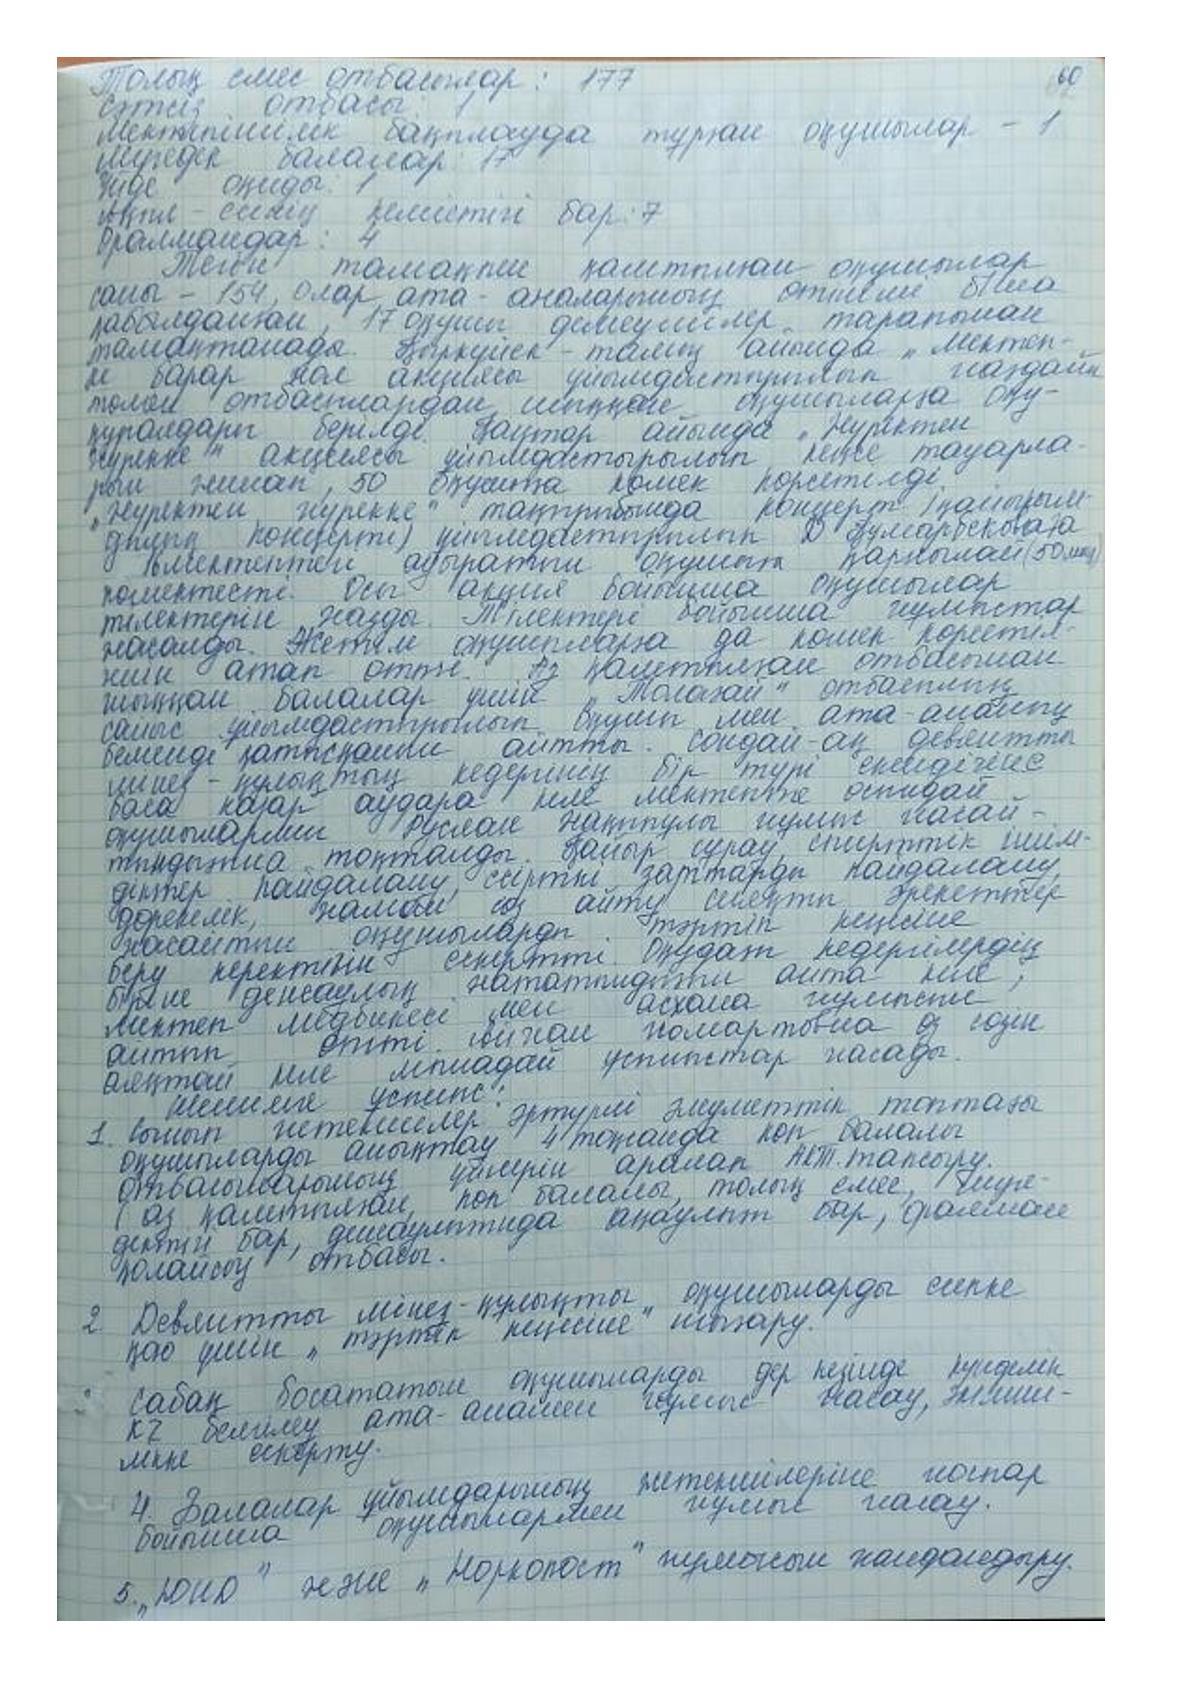 Толық емес отбасылар: 177
60
Сәтсіз отбасы: 1
Мектепішілік бақылауда тұрған оқушылар - 1
Мүгедек балалар: 17
Үйде оқиды: 1
Ақыл-есінің кемістігі бар: 7
Оралмандар: 4
Тегін тамақпен қамтылған оқушылар
саны - 154, Олар ата-аналарының өтініші б/ша
қабылданған, 17 оқушы демеушілер тарапынан
тамақтанады. Қыркүйек - тамыз айында „Мектеп-
ке барар жол акциясы ұйымдастырылып жағдайы
төмен отбасылардан шыққан оқушыларға оқу-
құралдары берілді. Қаңтар айында „Жүректен
жүрекке" акциясы ұйымдастырылып кеңсе тауарла-
рын жинап, 50 оқушыға көмек көрсетілді.
„Жүректен жүрекке" тақырыбында концерт (қайырым-
дылық концерті) ұйымдастырылып Д Құмарбековаға
мектептен ауыратын оқушыға қаржылай (50 мың)
көмектесті. Осы акция бойынша оқушылар
тілектерін жазды. Тілектері бойынша жұмыстар
жасалды. Жетім оқушыларға да көмек көрсетіл-
нін атап өтті. Аз қамтылған отбасынан
шыққан балалар үшін „Толағай" отбасылық
сайыс ұйымдастырылып оқушы мен ата-анасының
белсенді қатысқанын айтты. Сондай-ақ девиантты
мінез-құлықтың кедергінің бір түрі екендігіне
баса назар аудара келе мектепте осындай
оқушылармен Руслан жұмыс жасай-
тындығына тоқталды. Қайыр сұрау, спирттік ішім-
діктер пайдалану, есірткі заттарды пайдалану,
дөрекілік, жаман сөз айту сияқты әрекеттер
жасайтын оқушыларды тәртіп кеңесіне
беру керектігін ескертті. Оқудағы кедергілердің
біріне денсаулық жататындығын айта келе,
мектеп медбикесі мен асхана жұмысын
айтып өтті. өз сөзін
аяқтай келе мынадай ұсыныстар жасады.
Шешімге ұсыныс:
1. Сынып жетекшілер әртүрлі әлуметтік топтағы
оқушыларды анықтау 4 тоқсанда көп балалы
отбасыларының үйлерін аралап АКТ.тапсыру.
( аз қамтылған, көп балалы, толық емес, мүге-
дектігі бар, денсаулығында ақаулығы бар, оралман
қолайсыз отбасы.
2. Девиантты мінез-құлықты оқушыларды есепке
қою үшін „тәртіп кеңесіне" шығару.
Сабақ босататын оқушыларды дер кезінде күнделік
KZ белгілеу ата-анамен жұмыс жасау, әкімші-
лікке ескерту.
4. Балалар ұйымдарының жетекшілеріне жоспар
бойынша оқушылармен жұмыс жасау.
5. „ЮИД" және „Наркопост" жұмысын жандандыру.